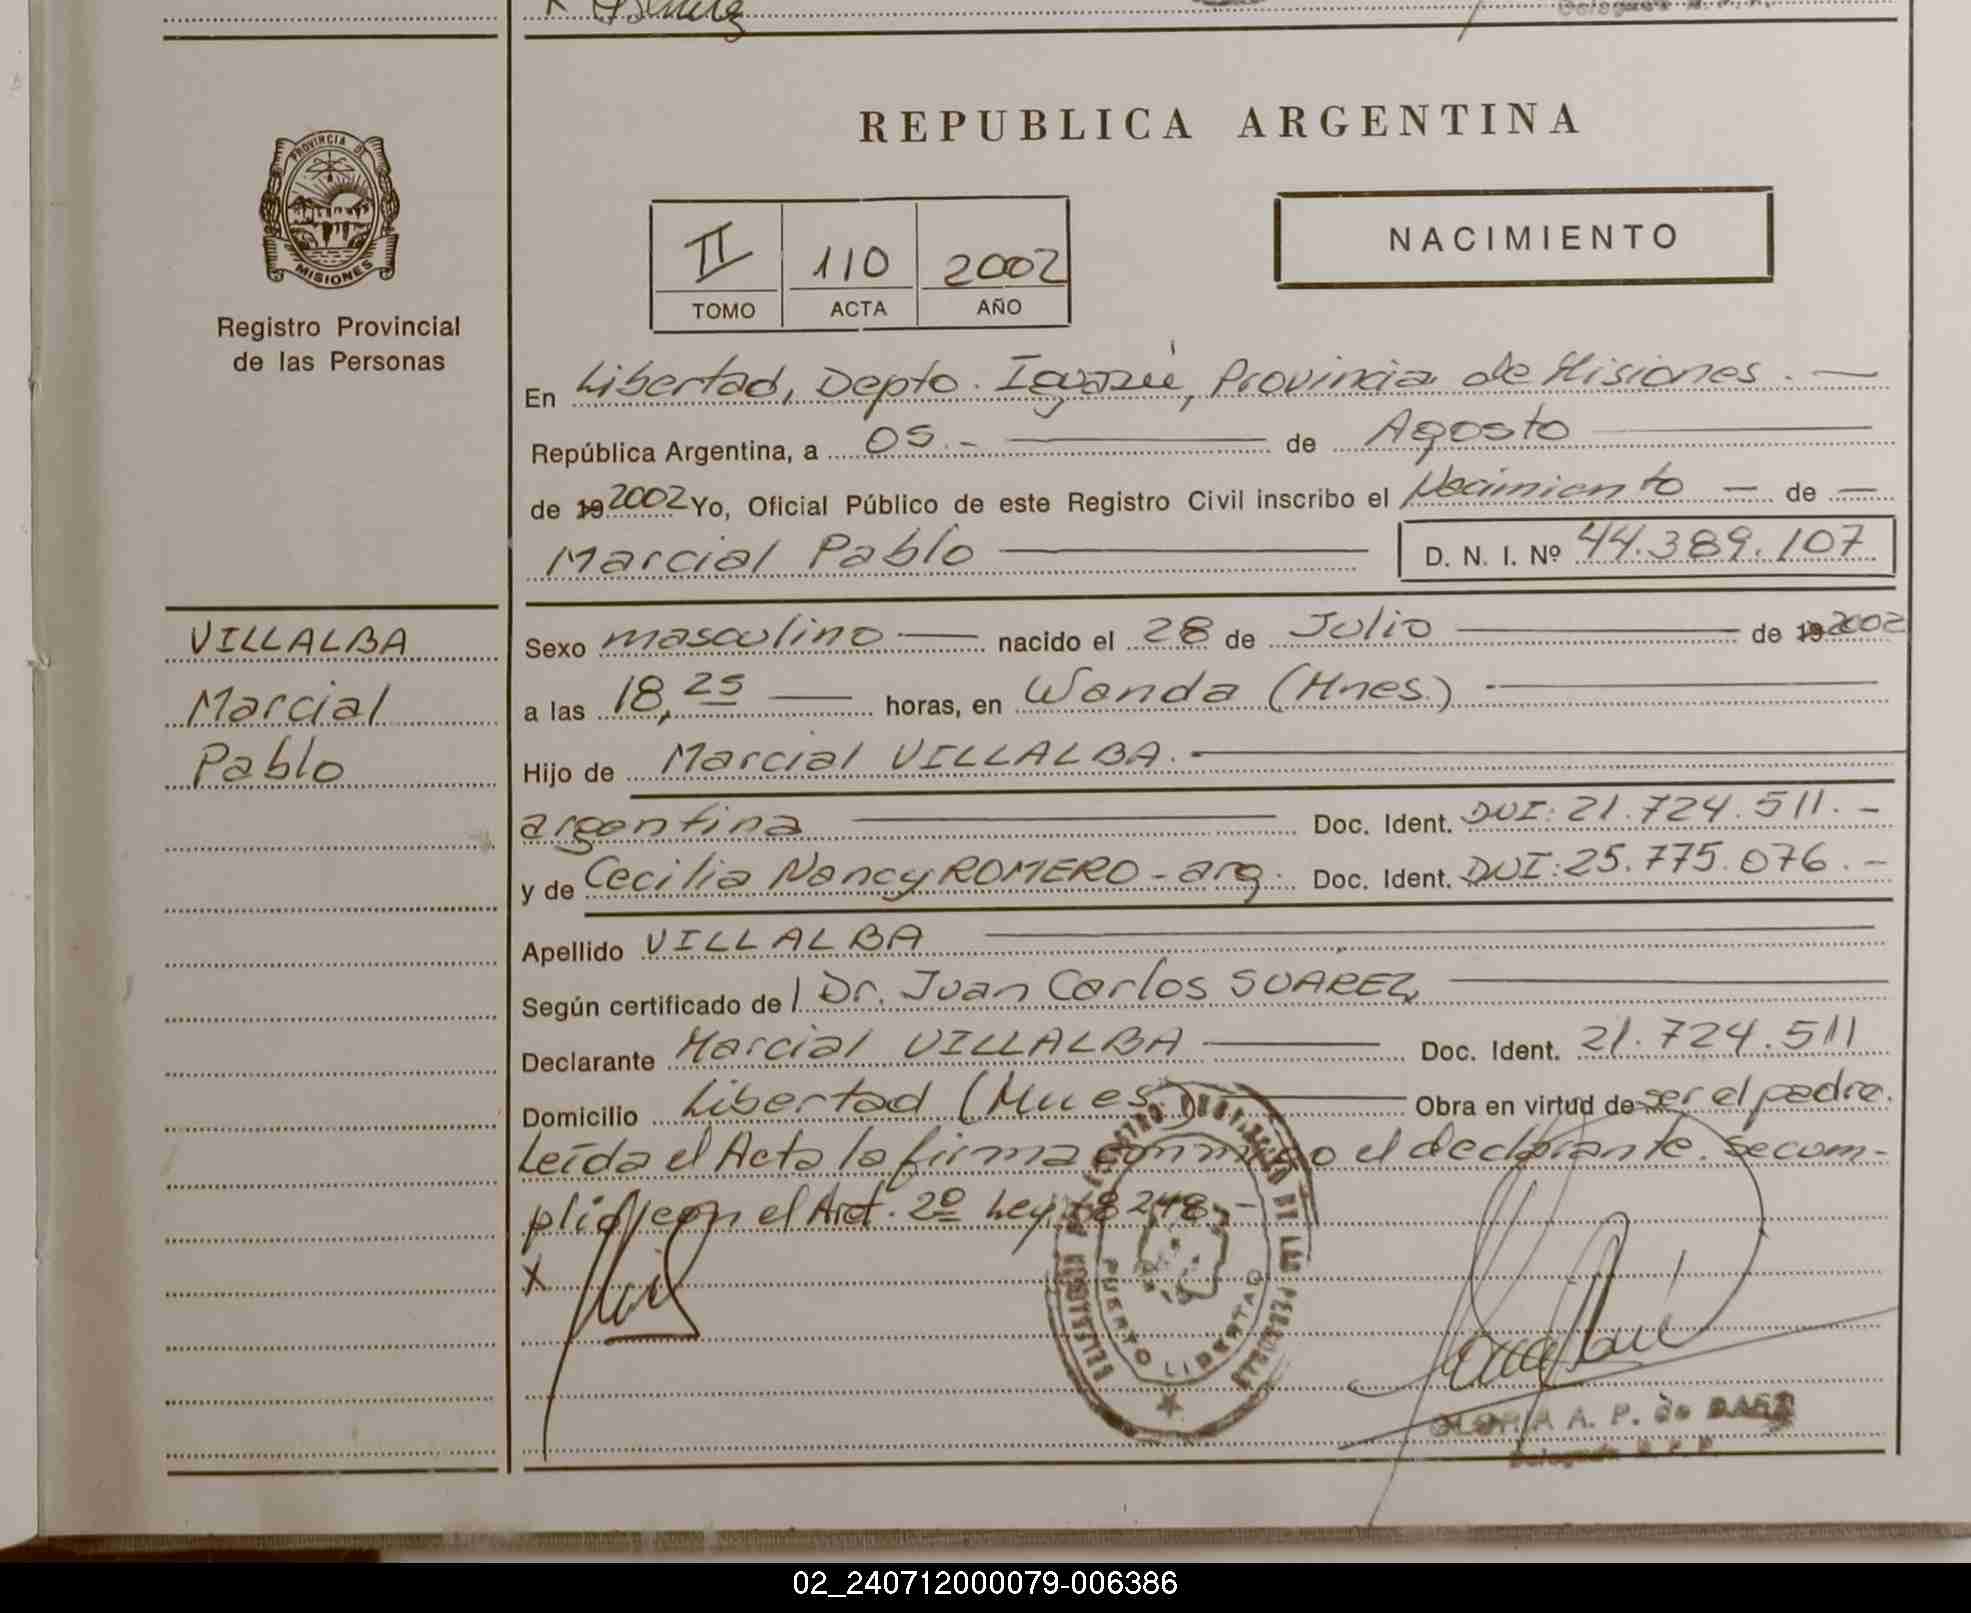 PROVINCIA DE
MISIONES
Registro Provincial
de las Personas
VILLALBA
Marcial
Pablo
REPUBLICA ARGENTINA
NACIMIENTO
II 110 2002
TOMO ACTA AÑO
En Libertad, Depto. Iguazú, Provincia de Misiones. —
República Argentina, a 05.- de Agosto
de 19 2002 Yo, Oficial Público de este Registro Civil inscribo el Nacimiento — de —
Marcial Pablo — D. N. I. Nº 44.389.107
Sexo masculino — nacido el 28 de Julio — de 19 2002
a las 18,25 — horas, en Wanda (Mnes.) —
Hijo de Marcial VILLALBA. —
argentina — Doc. Ident. DUI: 21.724.511.-
y de Cecilia Nancy ROMERO - arg. Doc. Ident. DUI: 25.775.076.-
Apellido VILLALBA —
Según certificado de l Dr. Juan Carlos SUAREZ, —
Declarante Marcial VILLALBA — Doc. Ident. 21.724.511
Domicilio Libertad (Mnes) — Obra en virtud de ser el padre.
Leída el Acta la firma conmigo el declarante. Secum-
plió con el Art. 2º Ley 18248.-
X
PUERTO LIBERTAD
GLORIA A. P. de
02_240712000079-006386